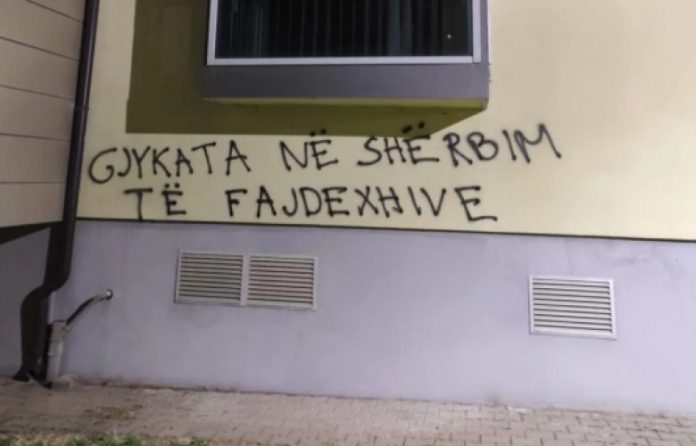 GJYKATA NË SHËRBIM
TË FAJDEXHIVE